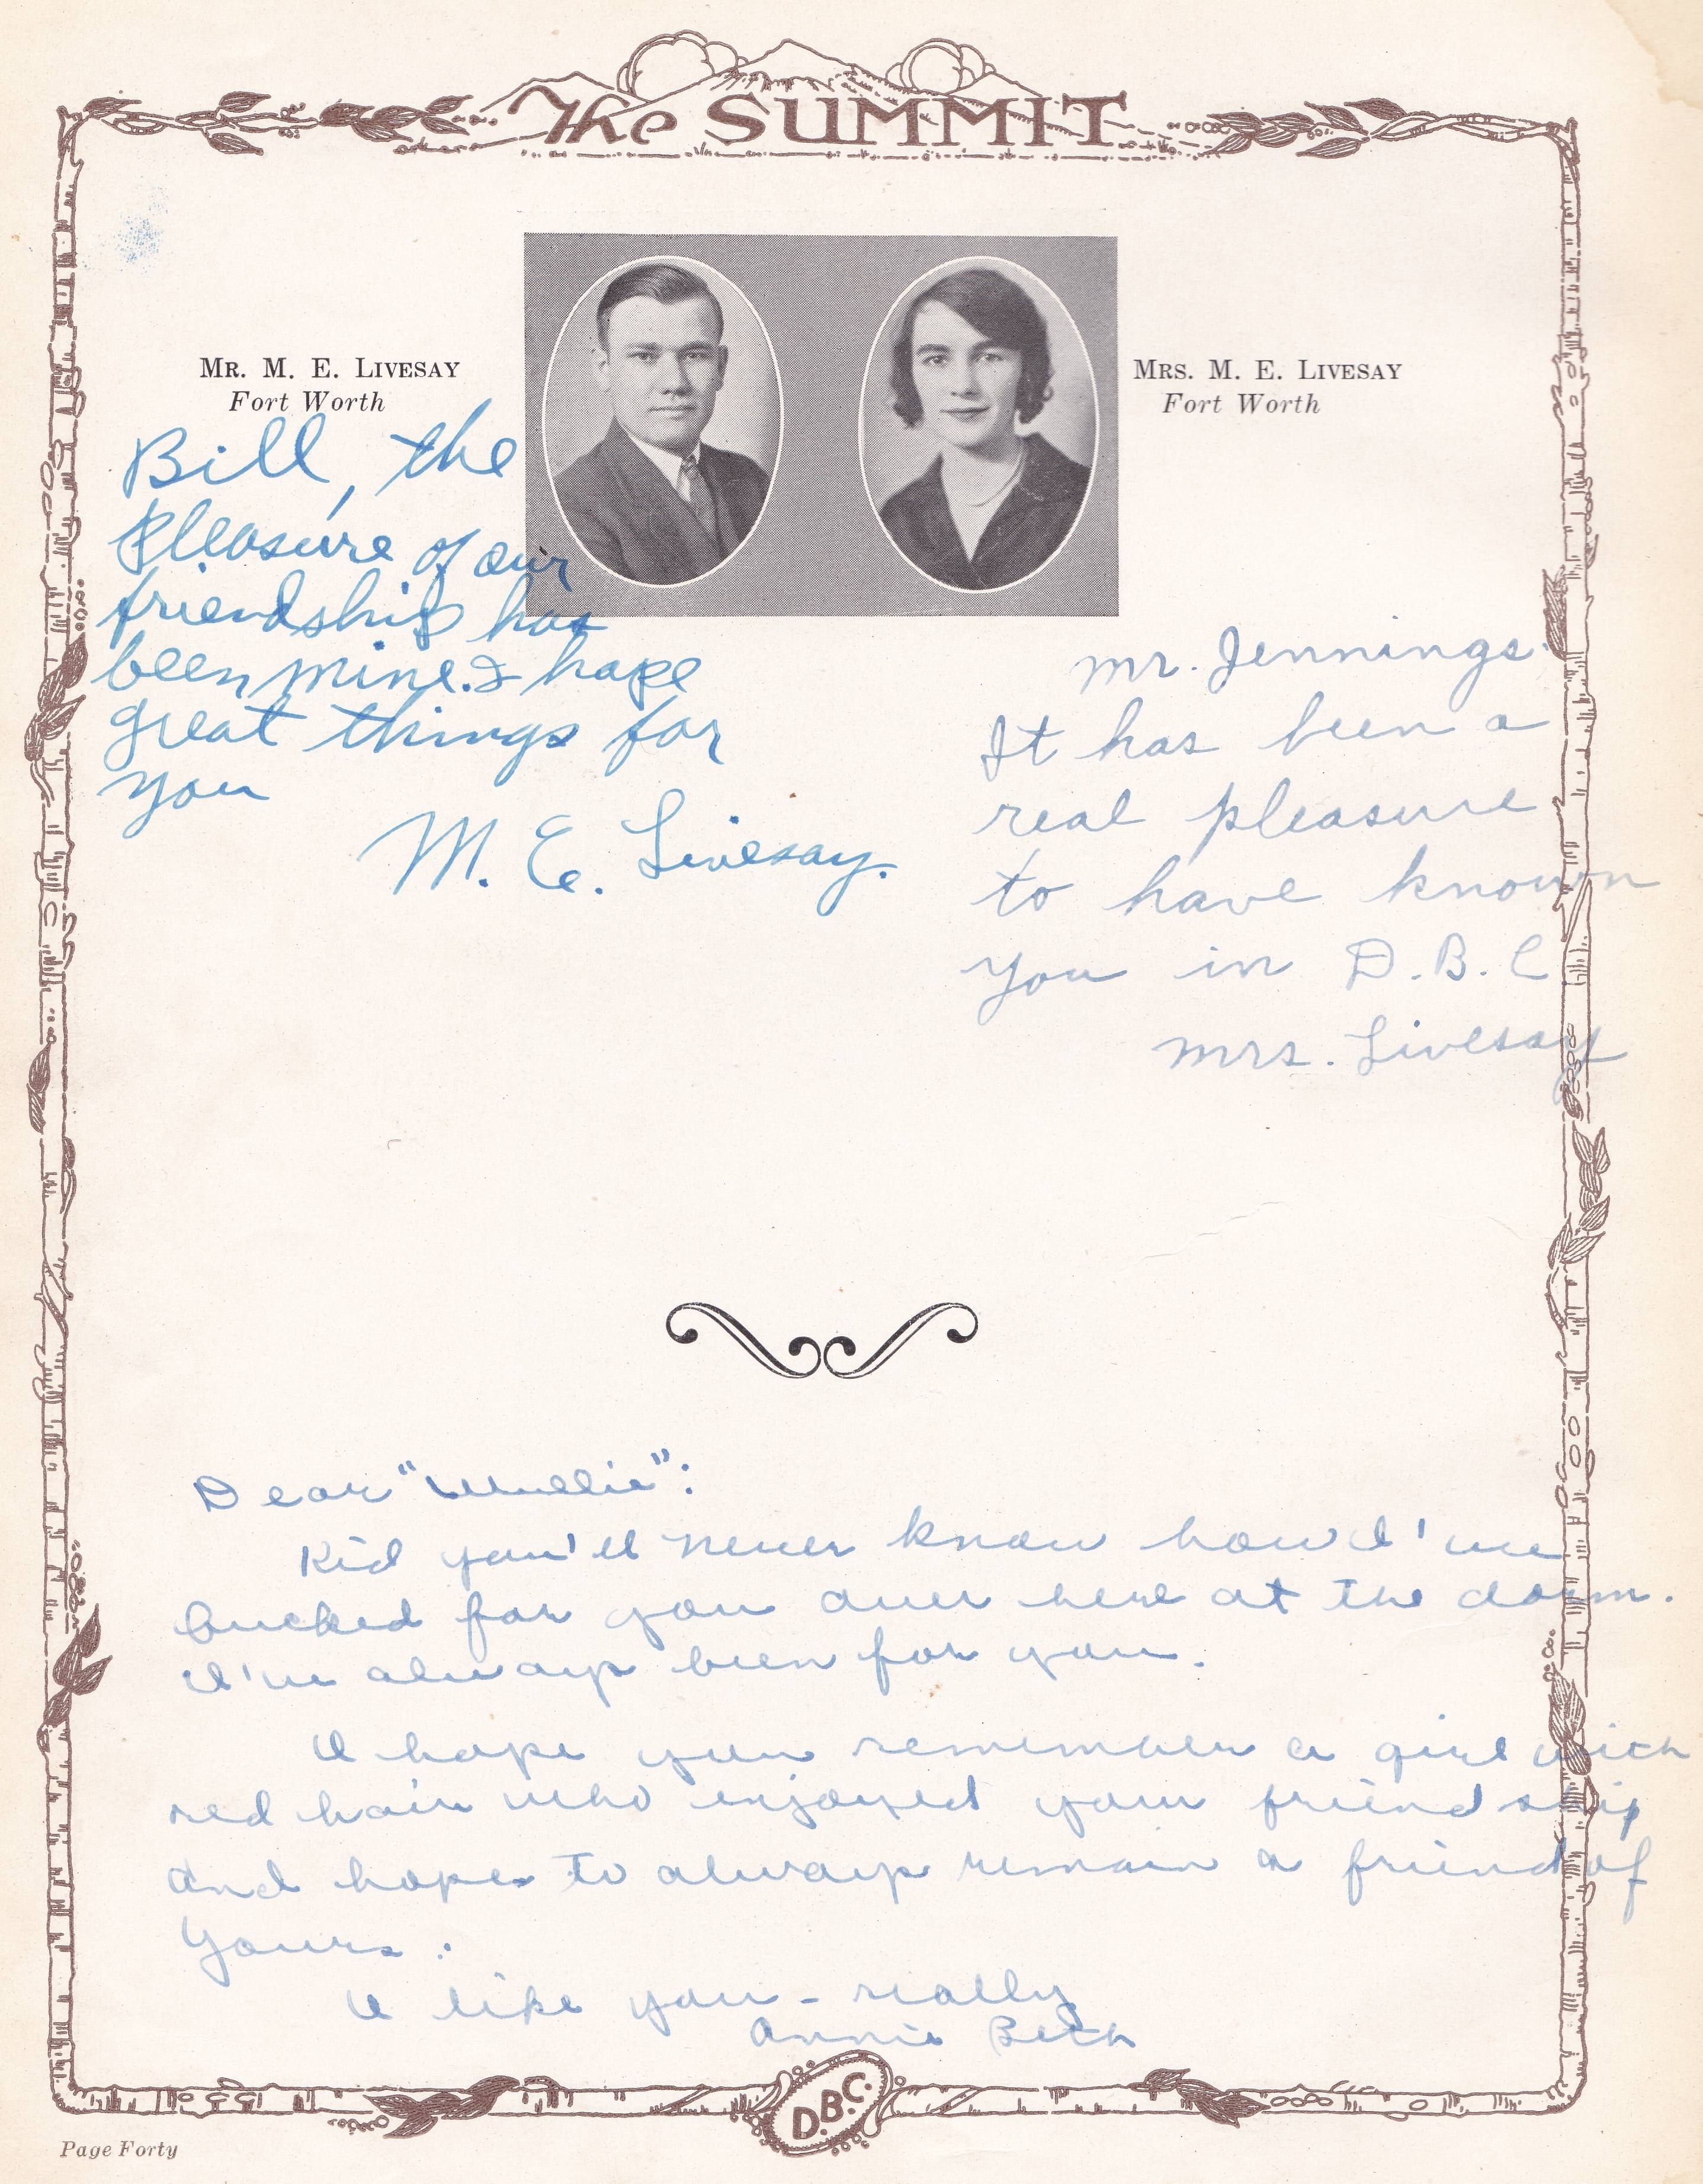 The SUMMIT
MR. M. E. LIVESAY
Fort Worth
MRS. M. E. LIVESAY
Fort Worth
Bill, the
pleasure of our
friendship has
been mine. I hope
great things for
you
M. E. Livesay.
Mr. Jennings.
It has been a
real pleasure
to have known
you in D.B.C.
Mrs. Livesay
Dear "Wullie":
Kid you'll never know how I've
bucked for you over here at the dorm.
I've always been for you.
I hope you remember a girl with
red hair who enjoyed your friendship
and hopes to always remain a friend of
yours.
I like you - really
Annie Beth
D.B.C.
Page Forty